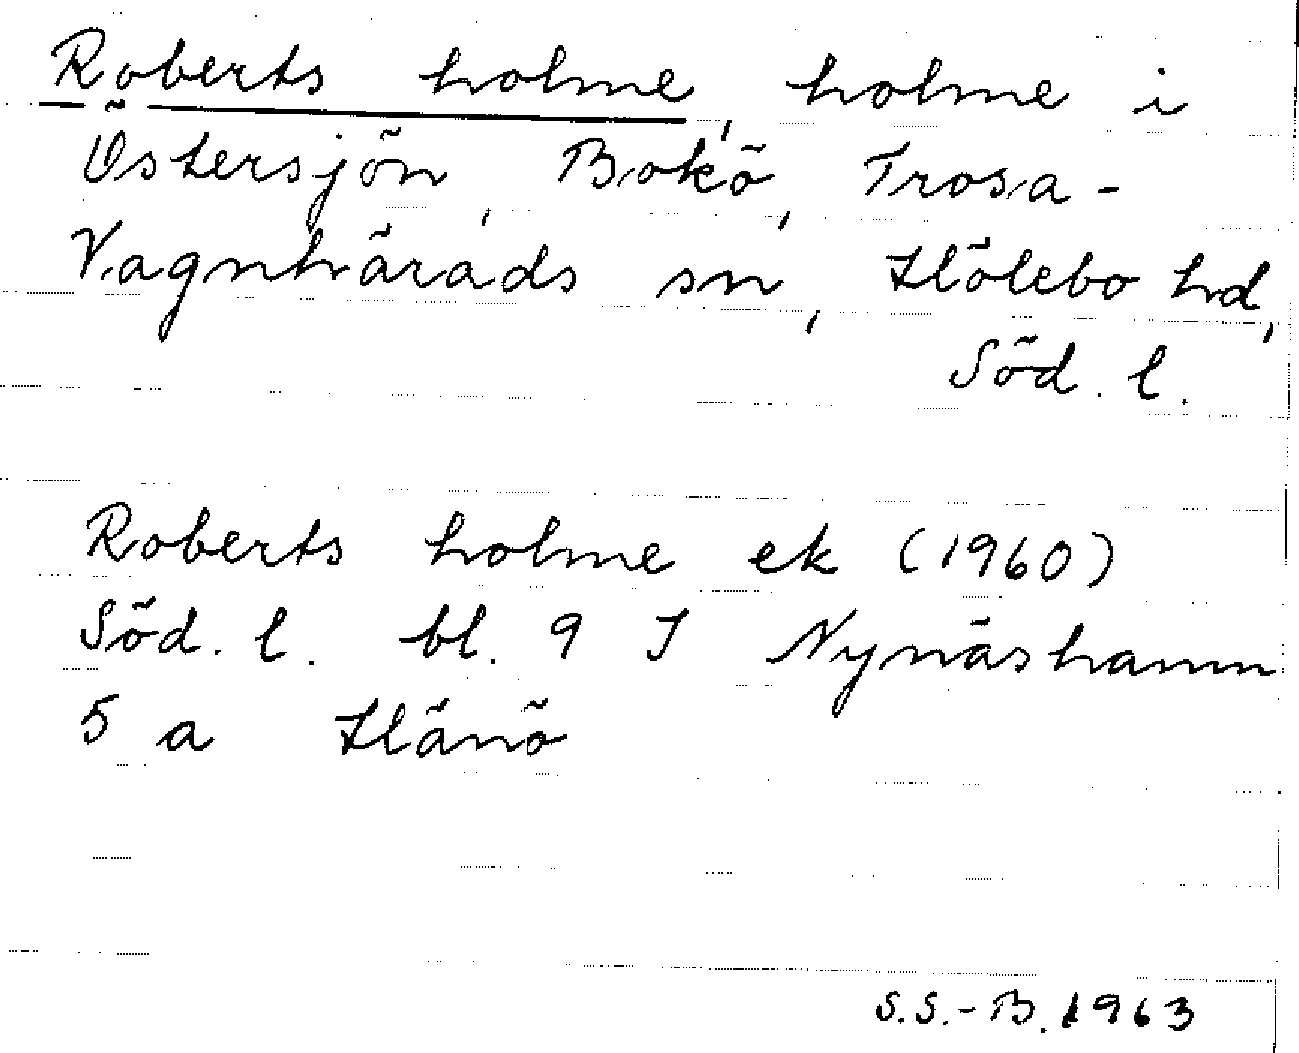 Roberts holme, holme i
Östersjön, Bokö, Trosa-
Vagnhärads sn, Hölebo hd,
Söd. l.
Roberts holme ek (1960)
Söd. l. bl. 9 I Nynäshamn
5 a Hånö
S.S.-B. 1963